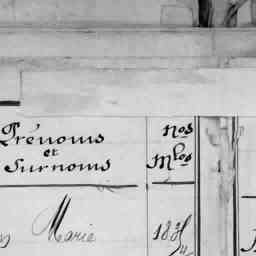 Prénoms nos
et
Surnoms Mles
Marie